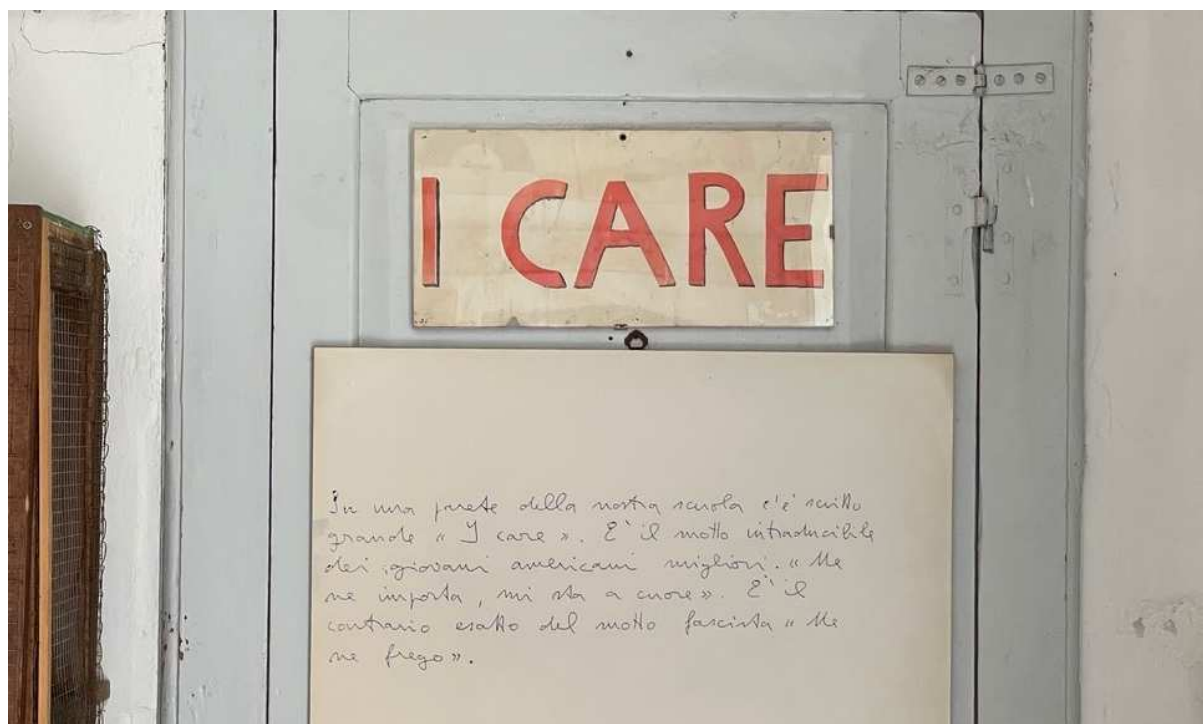 I CARE
In una parete della nostra scuola c'è scritto
grande « I care ». E' il motto intraducibile
dei giovani americani migliori. « Me
ne importa, mi sta a cuore ». E' il
contrario esatto del motto fascista « Me
ne frego ».